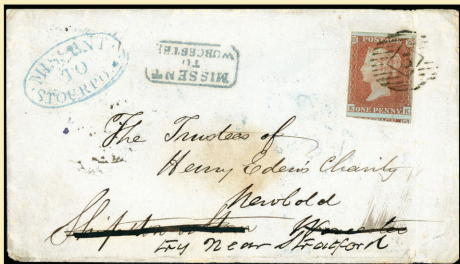 MISSENT
TO
STOURPO
MISSENT
TO
WORCESTE
POSTAGE
ONE PENNY
The Trustees of
Henry Eden's Charity
Newbold
Shipston on Stour Worcester
Try Near Stratford